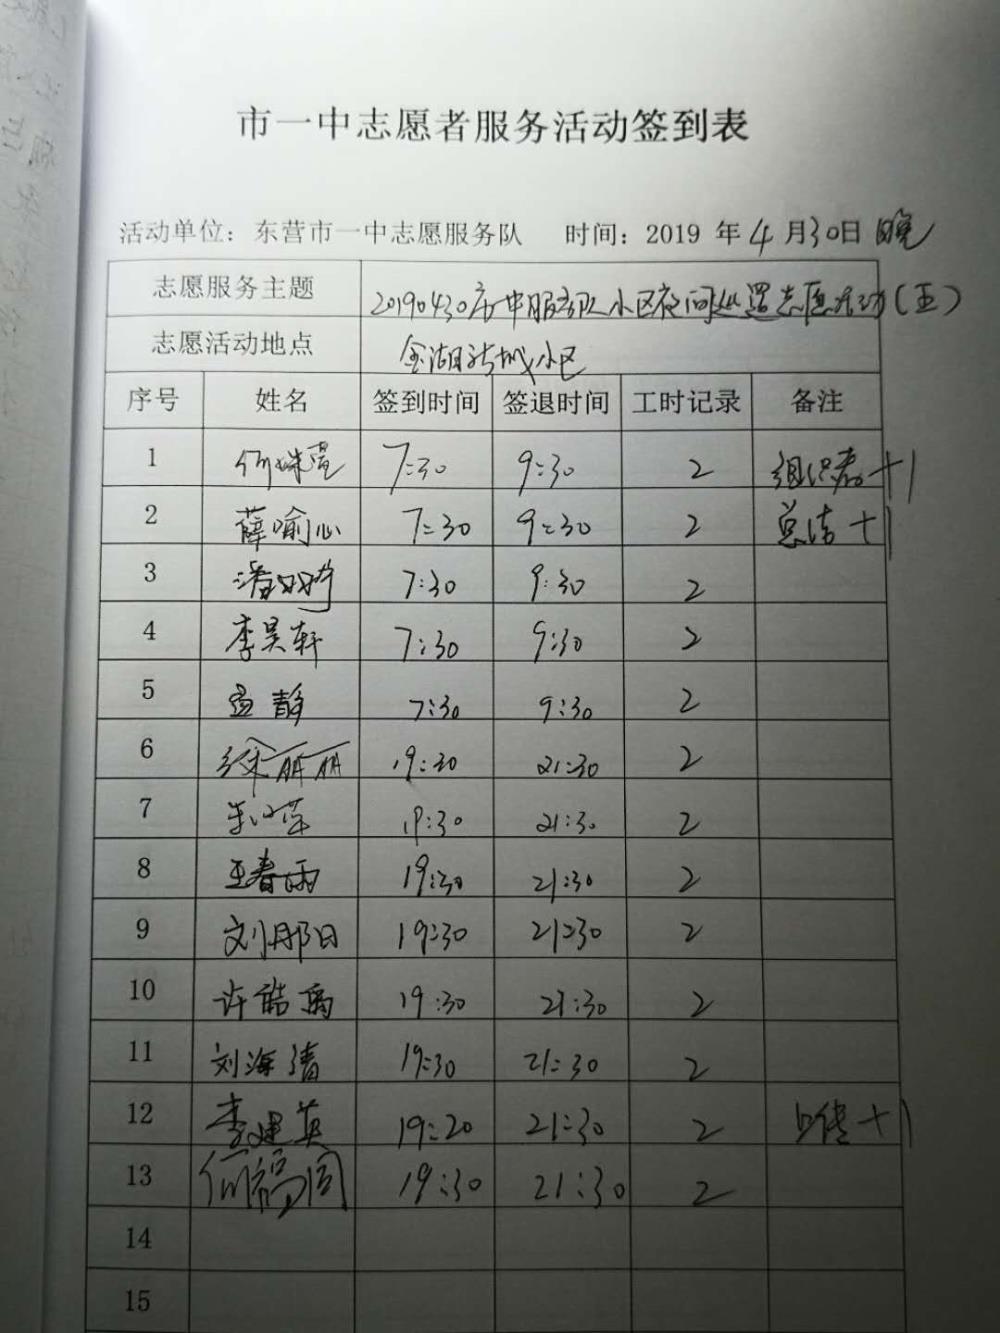 市一中志愿者服务活动签到表
活动单位：东营市一中志愿服务队 时间：2019 年 4 月30日 晚
志愿服务主题 20190430市一中服务队小区夜间巡逻志愿活动（五）
志愿活动地点 金湖新城小区
序号 姓名 签到时间 签退时间 工时记录 备注
1 何姝莹 7:30 9:30 2 组织者+1
2 薛喻心 7:30 9:30 2 总结+1
3 7:30 9:30 2
4 李昊轩 7:30 9:30 2
5 孟静 7:30 9:30 2
6 徐丽丽 19:30 21:30 2
7 19:30 21:30 2
8 王春雨 19:30 21:30 2
9 刘那日 19:30 21:30 2
10 许皓禹 19:30 21:30 2
11 刘海清 19:30 21:30 2
12 李建英 19:20 21:30 2 上传+1
13 何福同 19:30 21:30 2
14
15